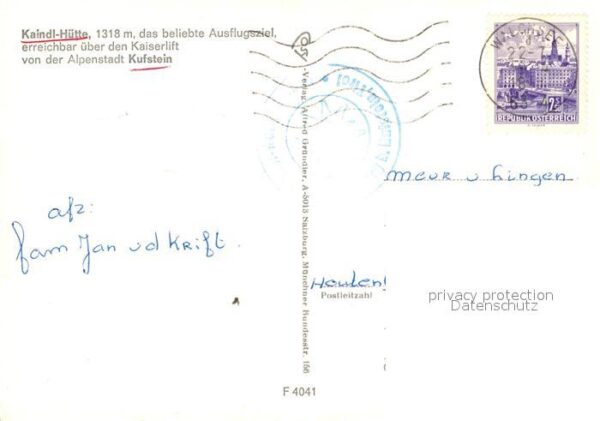 Kaindl-Hütte, 1318 m, das beliebte Ausflugsziel,
erreichbar über den Kaiserlift
von der Alpenstadt Kufstein
REPUBLIK ÖSTERREICH
afz:
fam Jan vd Krift.
Verlag Alfred Gründler, A-5013 Salzburg, Münchner Bundesstr. 156
meur v hingen
Houten!
Postleitzahl
privacy protection
Datenschutz
F 4041